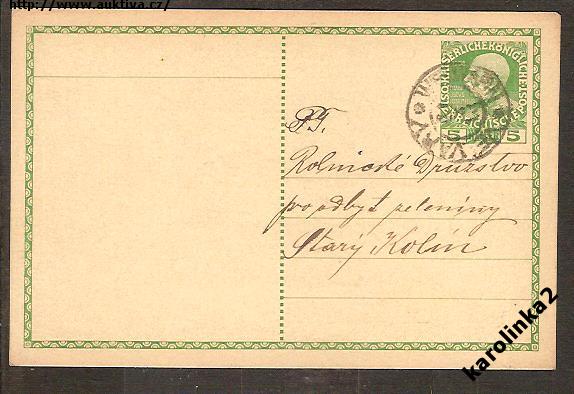 http://www.auktiva.cz/
KAISERLICHE KÖNIGLICHE
5 5
P.T.
Rolnické Družstvo
pro odbyt zeleniny
Starý Kolín
karolinka2